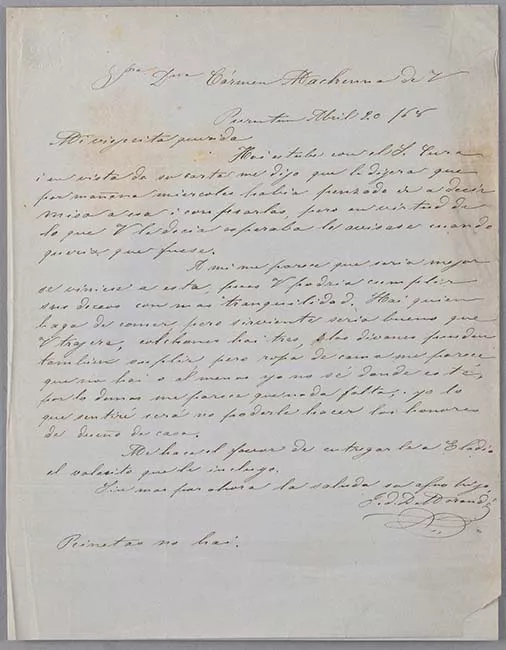 Sra Dna Cármen Mackenna de V
Abril 20/68
Mi viejecita querida
Hoi estube con el S. Cura
i en vista de su carta me dijo que le dijera que
por mañana miercoles habia penzado ir a decir
misa a esa i confesarlas, pero en virtud de
lo que V le decia esperaba le avisase cuando
queria que fuese.
A mi me parece que seria mejor
se viniese a esta, pues V podria cumplir
sus deceos con mas tranquilidad. Hai quien
haga de comer, pero sirviente seria bueno que
V trajera, colchones hai tres, i los divanes pueden
tambien suplir pero ropa de cama me parece
que no hai o al menos yo no sé donde esté,
por lo demas me parece que nada falta, yo lo
que sentiré será no poderle hacer los honores
de dueño de casa.
Me hace el favor de entregarle a Eladio
el valesito que le incluyo.
Sin mas por ahora la saluda su afmo hijo
J. d. D. Morandé
no hai.